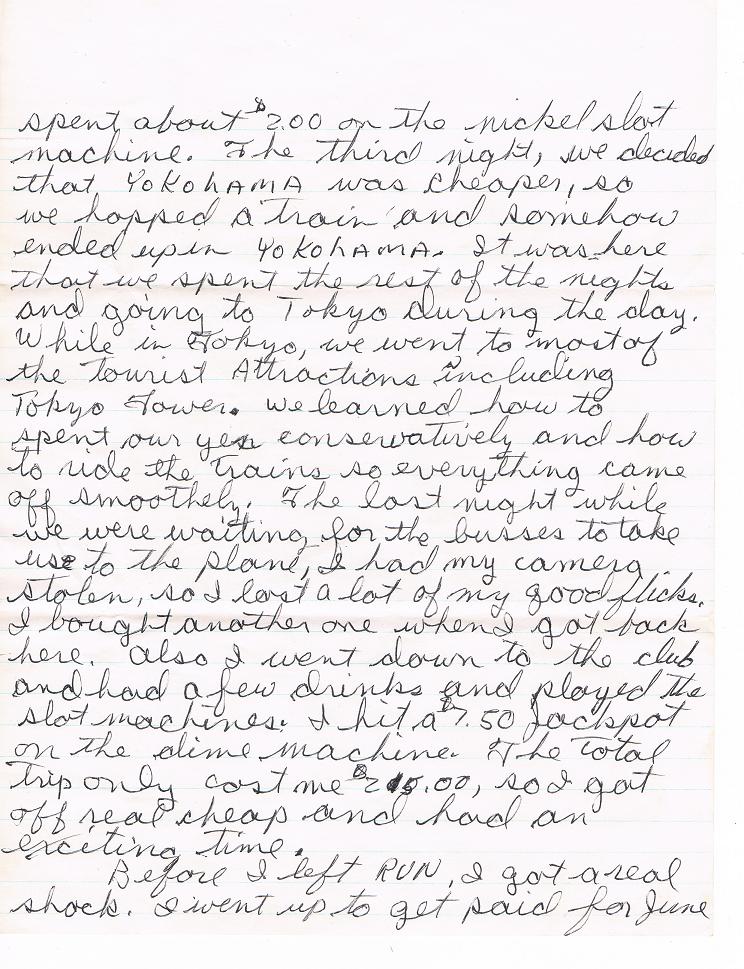 spent about $2.00 on the nickel slot
machine. The third night, we decided
that YOKOhAMA was cheaper, so
we hopped a train and somehow
ended up in YOKOhAMA. It was here
that we spent the rest of the nights
and going to Tokyo during the day.
While in Tokyo, we went to most of
the Tourist Attractions including
Tokyo Tower. We learned how to
spent our yen conservatively and how
to ride the trains so everything came
off smoothely. The last night while
we were waiting for the busses to take
us to the plane, I had my camera
stolen, so I lost a lot of my good flicks.
I bought another one when I got back
here. Also I went down to the club
and had a few drinks and played the
slot machines. I hit a $7.50 Jackpot
on the dime machine. The Total
trip only cost me $215.00, so I got
off real cheap and had an
exciting time.
Before I left RUN, I got a real
shock. I went up to get paid for June